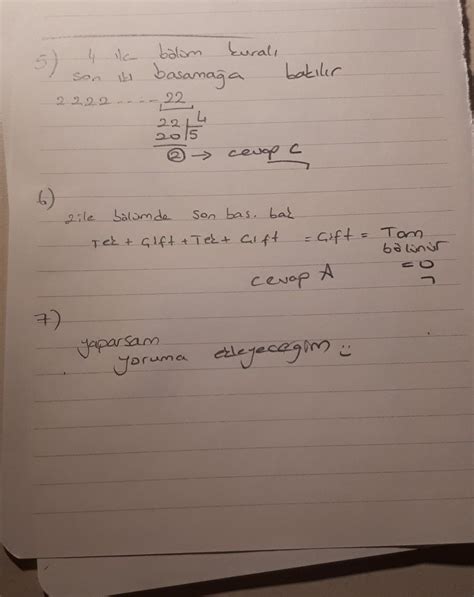 5) 4 ile bölüm kuralı
son iki basamağa bakılır
2222.....22
22 | 4
20 | 5
2 → cevap C
6)
2 ile bölümde son bas. bak
Tek + Çift + Tek + Çift = Çift = Tam
bölünür
= 0
cevap A
7)
yaparsam
yoruma ekleyeceğim :)